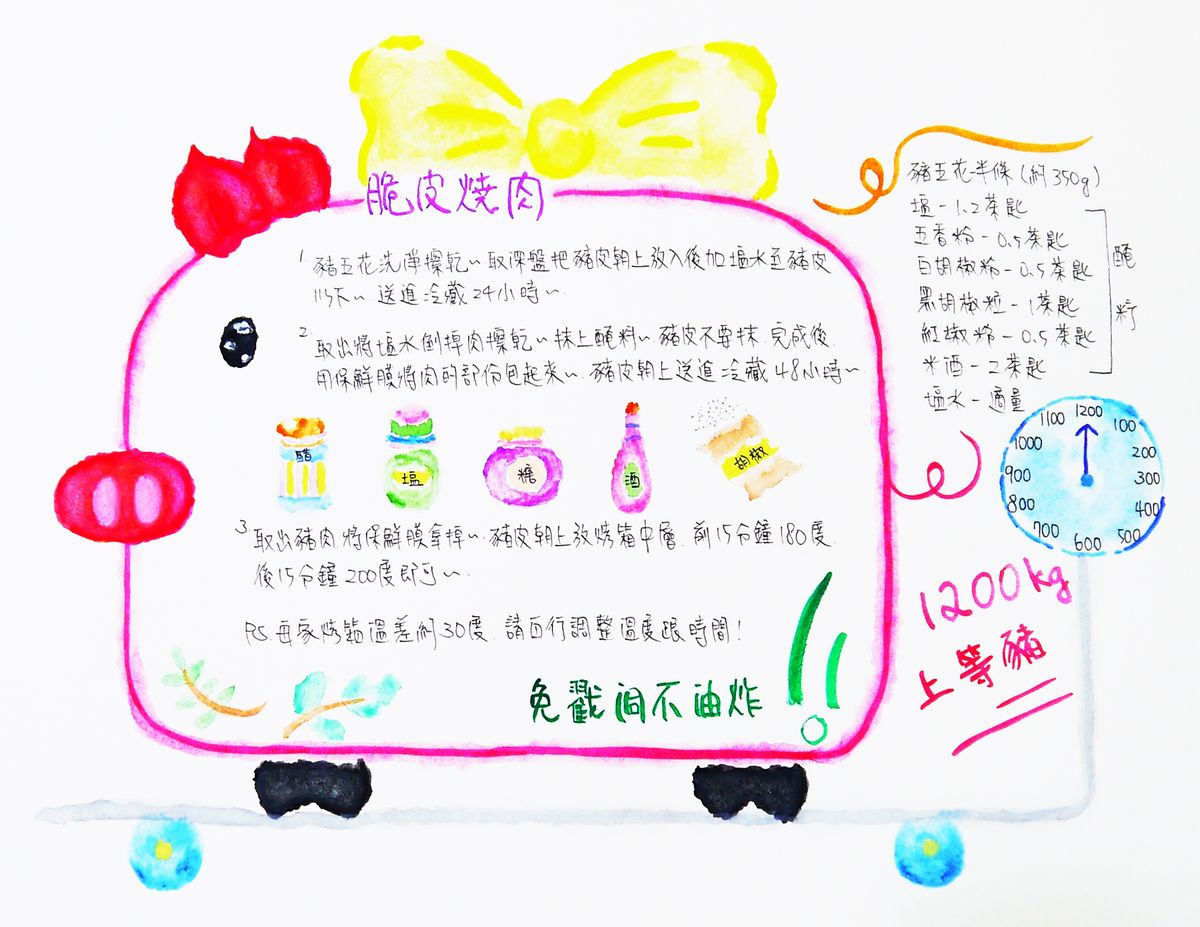 脆皮燒肉
1 豬五花洗淨擦乾~ 取深盤把豬皮朝上放入後加塩水至豬皮
115下~ 送進冷藏24小時~
2 取出將塩水倒掉肉擦乾~ 抹上醃料~ 豬皮不要抹. 完成後
用保鮮膜將肉的部份包起來~. 豬皮朝上送進冷藏48小時~
醋
塩
糖
酒
胡椒
3 取出豬肉.將保鮮膜拿掉~. 豬皮朝上放烤箱中層. 前15分鐘180度.
後15分鐘200度即可~.
PS 每家烤箱溫差約30度. 請自行調整溫度跟時間!
免戳洞不油炸
豬五花半條(約350g)
塩-1.2茶匙
五香粉-0.5茶匙
白胡椒粉-0.5茶匙
黑胡椒粒-1茶匙
紅椒粉-0.5茶匙
米酒-2茶匙
塩水-適量
醃料
1200
100
200
300
400
500
600
700
800
900
1000
1100
1200kg
上等豬